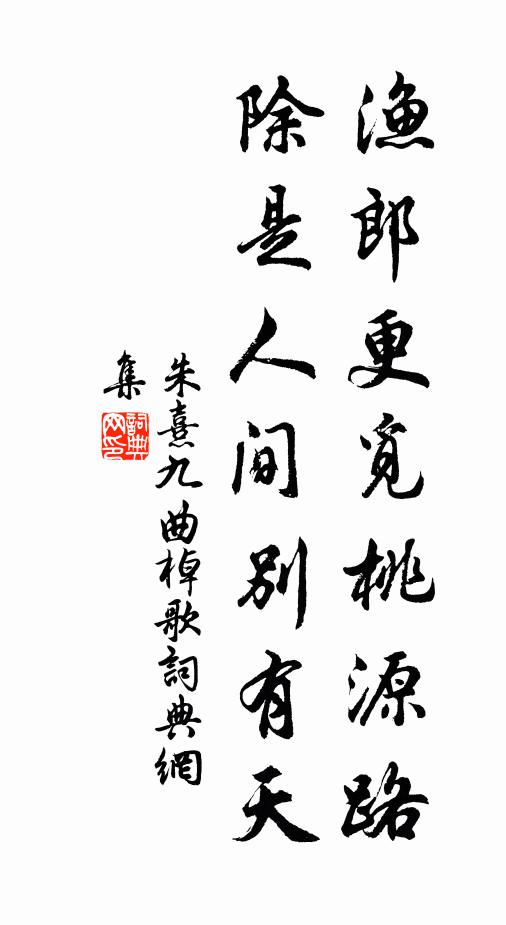 渔郎更觅桃源路
除是人间别有天
朱熹九曲棹歌詞典網
集
詞典网印